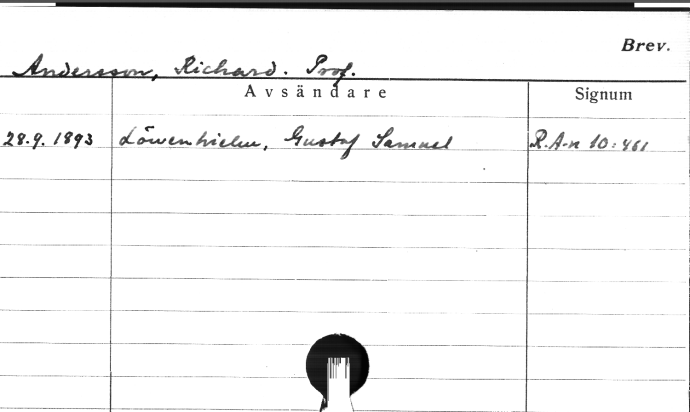 Brev.
Andersson, Richard. Prof.
Avsändare Signum
28.9.1893 Löwenhielm, Gustaf Samuel R.A-n 10:461